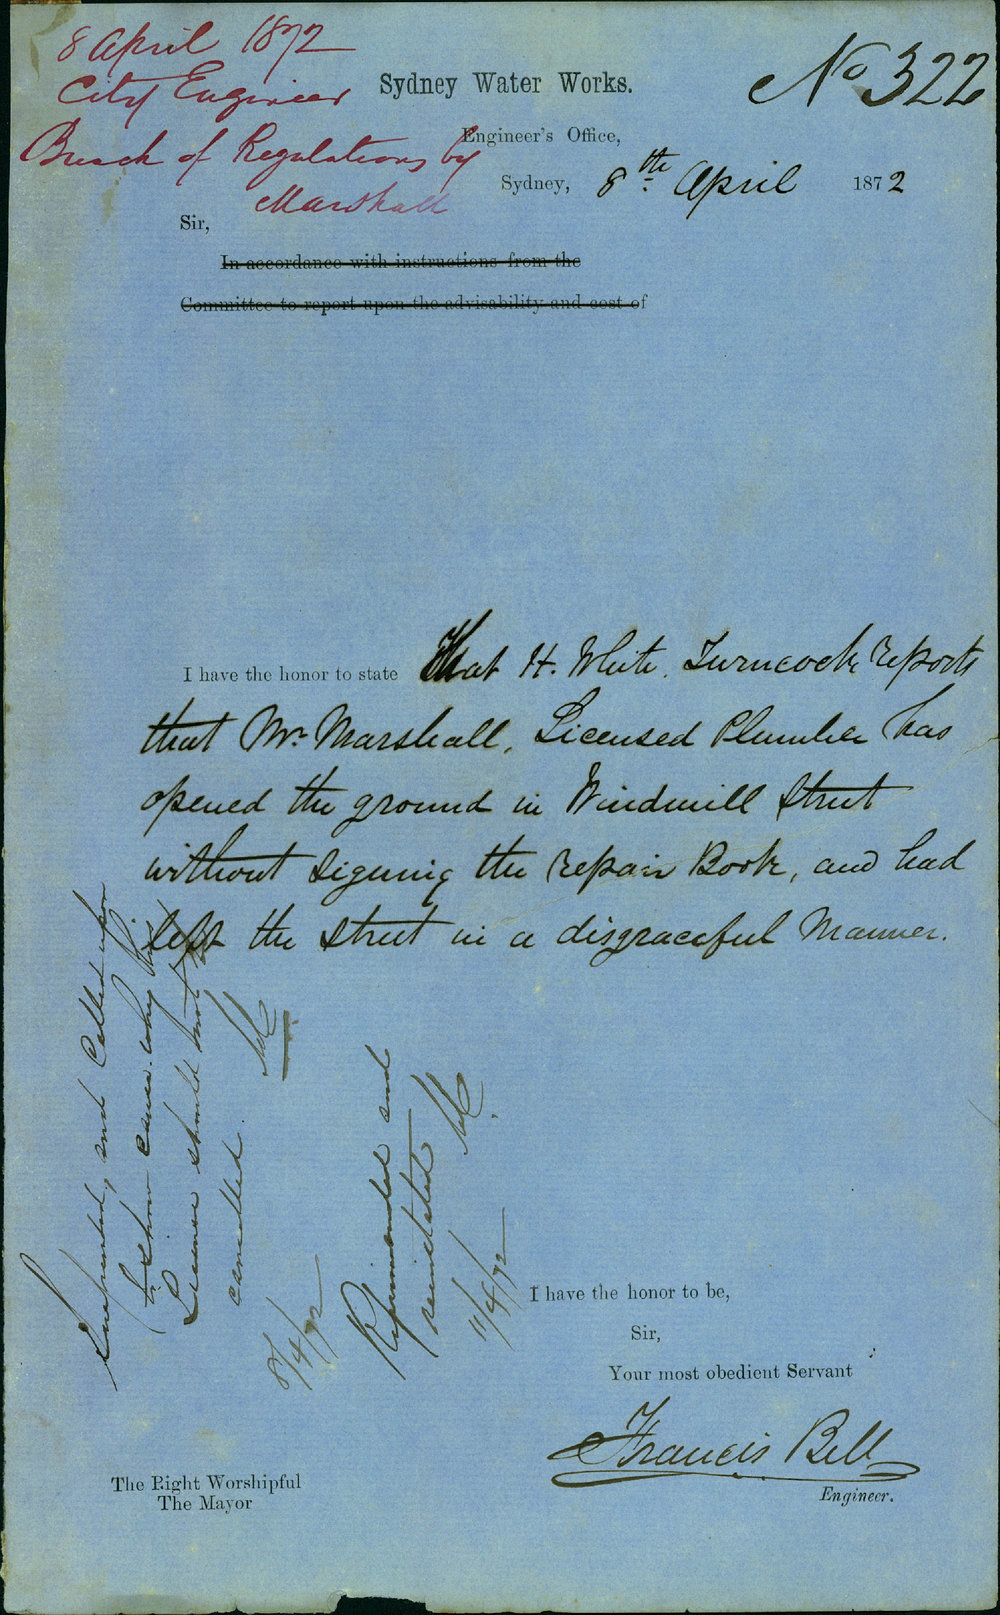 8 April 1872
City Engineer
Breach of Regulations by
Marshall
No 322
Sydney Water Works.
Engineer's Office,
Sydney, 8th April 1872
Sir,
In accordance with instructions from the
Committee to report upon the advisability and cost of
I have the honor to state that H. White. Turncock reports
that Mr. Marshall, Licensed Plumber has
opened the ground in Windmill Street
without signing the repair Book, and had
left the street in a disgraceful Manner.
Suspended, and Called upon
to show cause why his
License should not be
cancelled.
8/4/72
Reprimanded and
reinstated
11/4/72
I have the honor to be,
Sir,
Your most obedient Servant
Francis Bell
Engineer.
The Right Worshipful
The Mayor